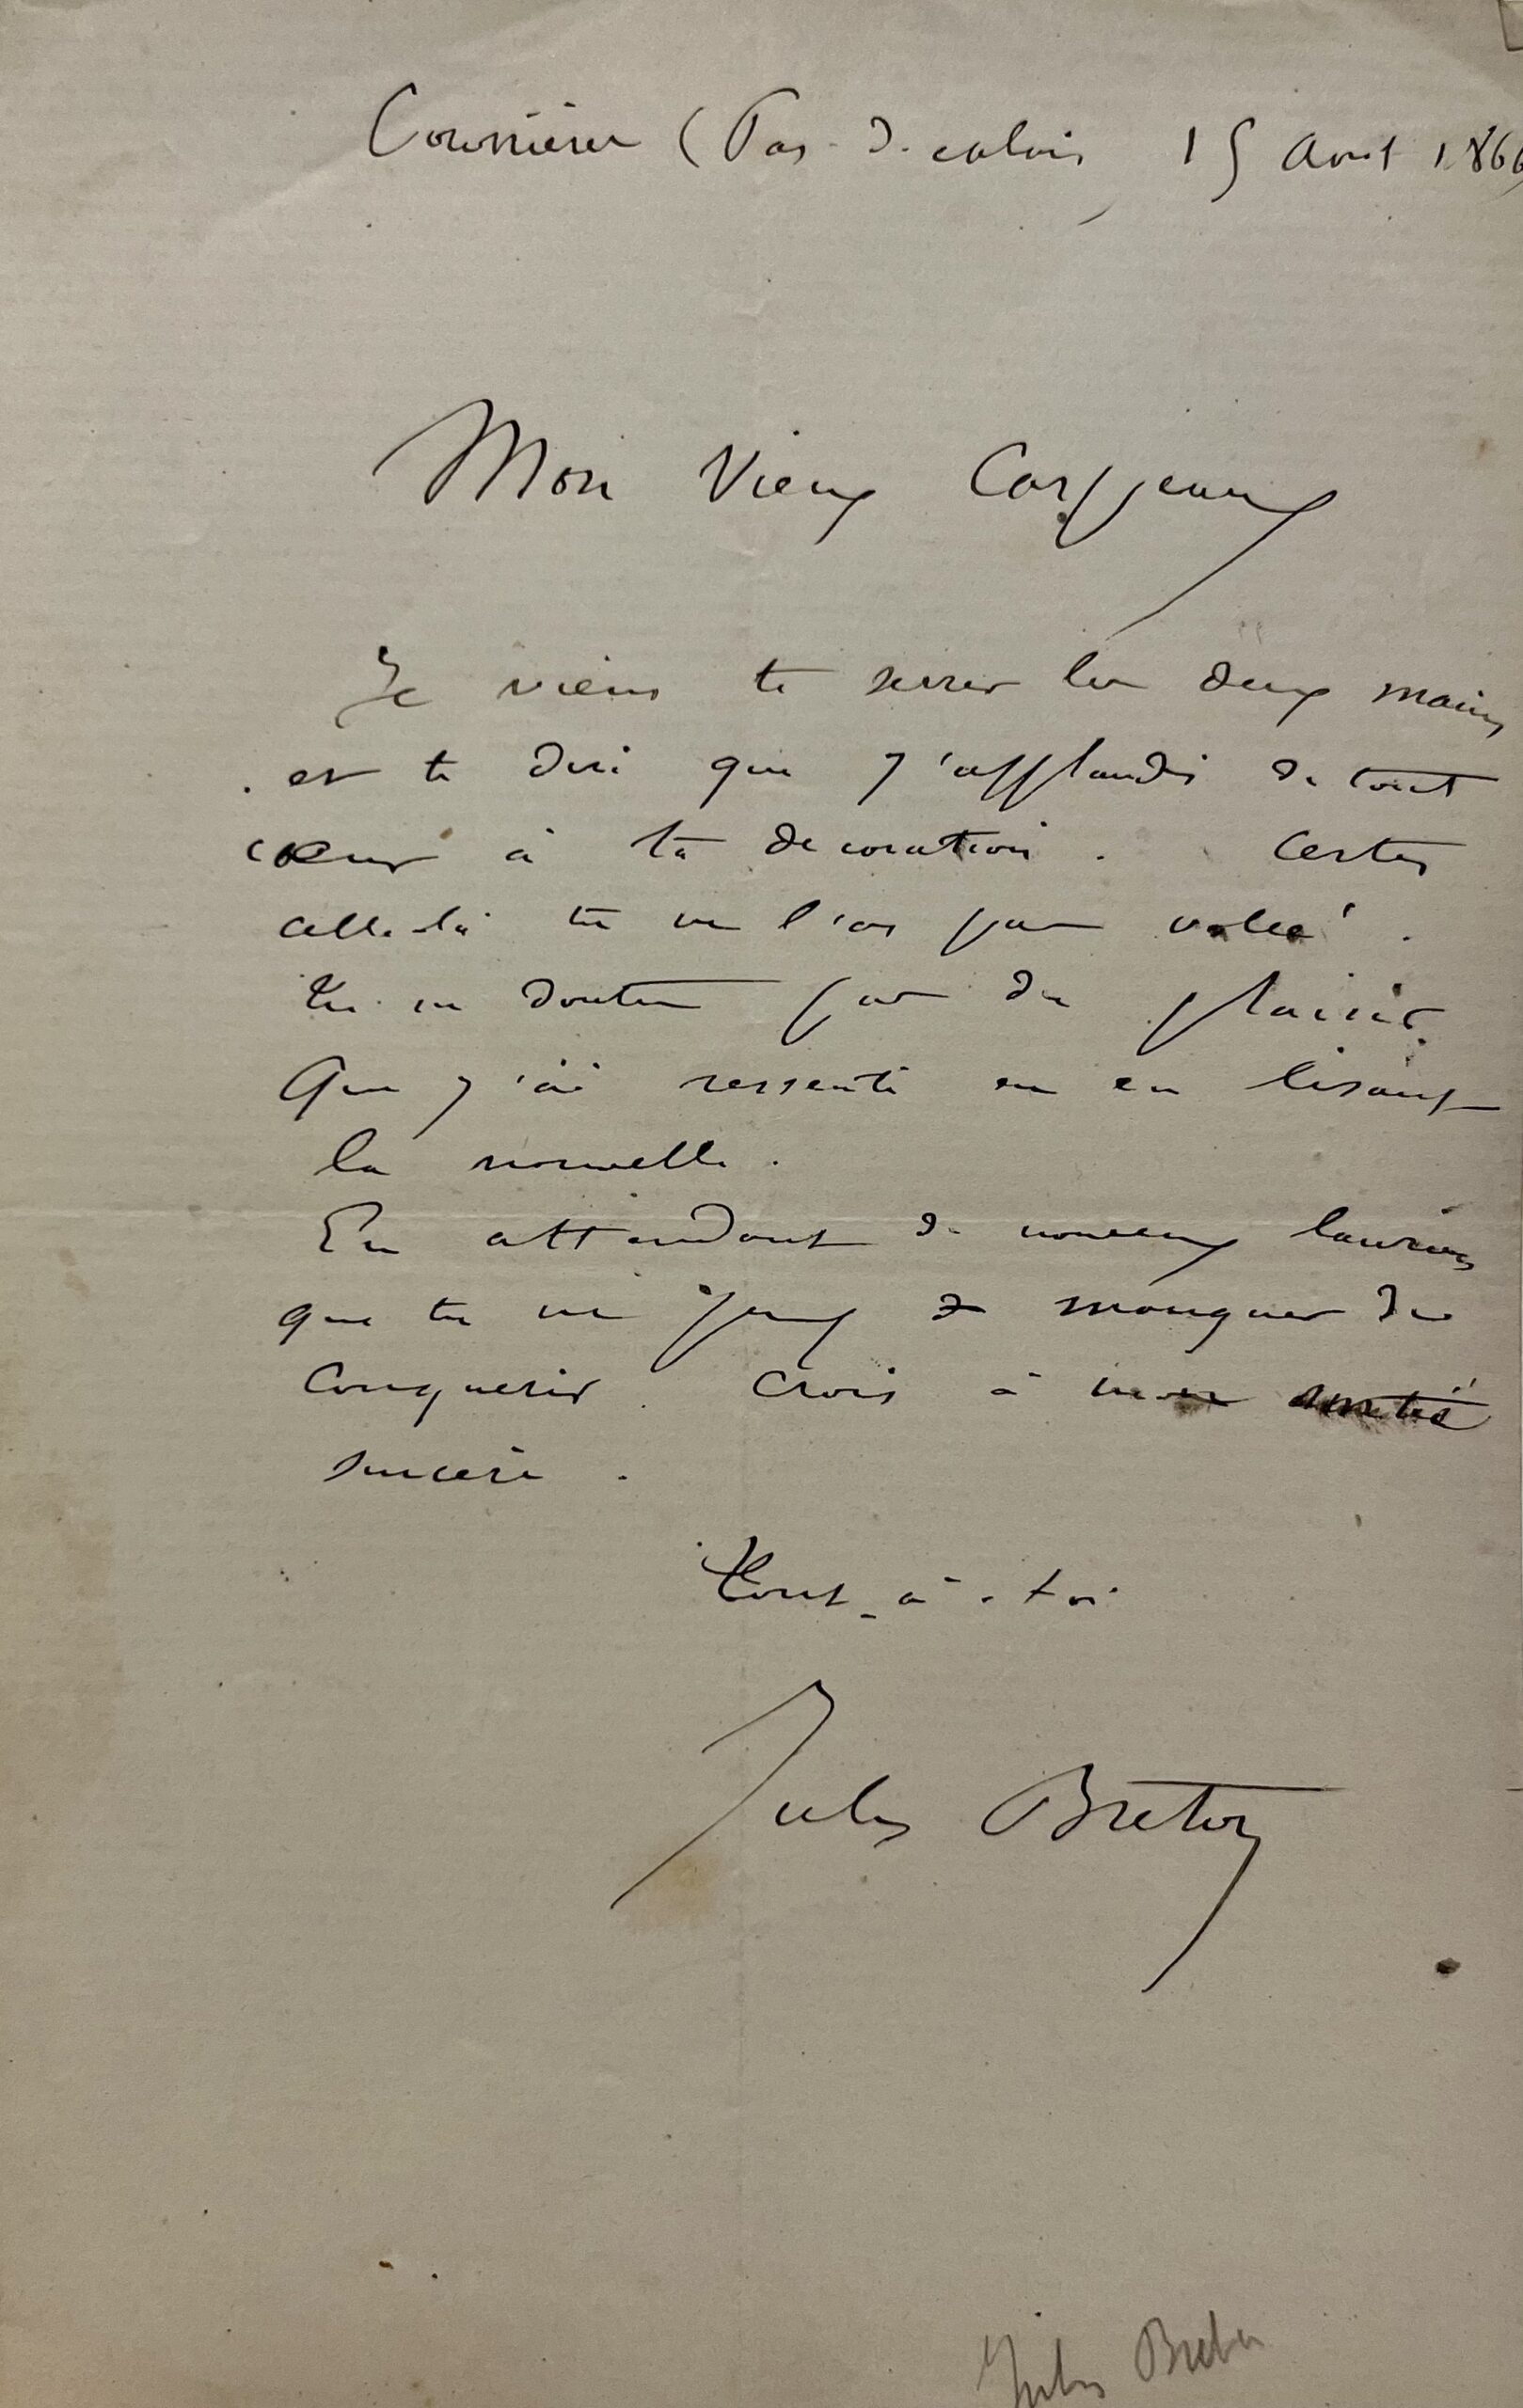 Courrières (Pas-de-calais, 15 Aout 1866
Mon Vieux Carpeaux
Je viens te serrer les deux mains
et te dire que j'applaudis de tout
coeur à ta decoration. Certes
celle-là tu ne l'as pas volée.
Tu ne doutes pas du plaisir
Que j'ai ressenti en en lisant
la nouvelle.
En attendant de nouveaux lauriers
que tu ne peux manquer de
Conquerir. Crois à mon amitié
sincère.
Tout-à-toi
Jules Breton
Jules Breton